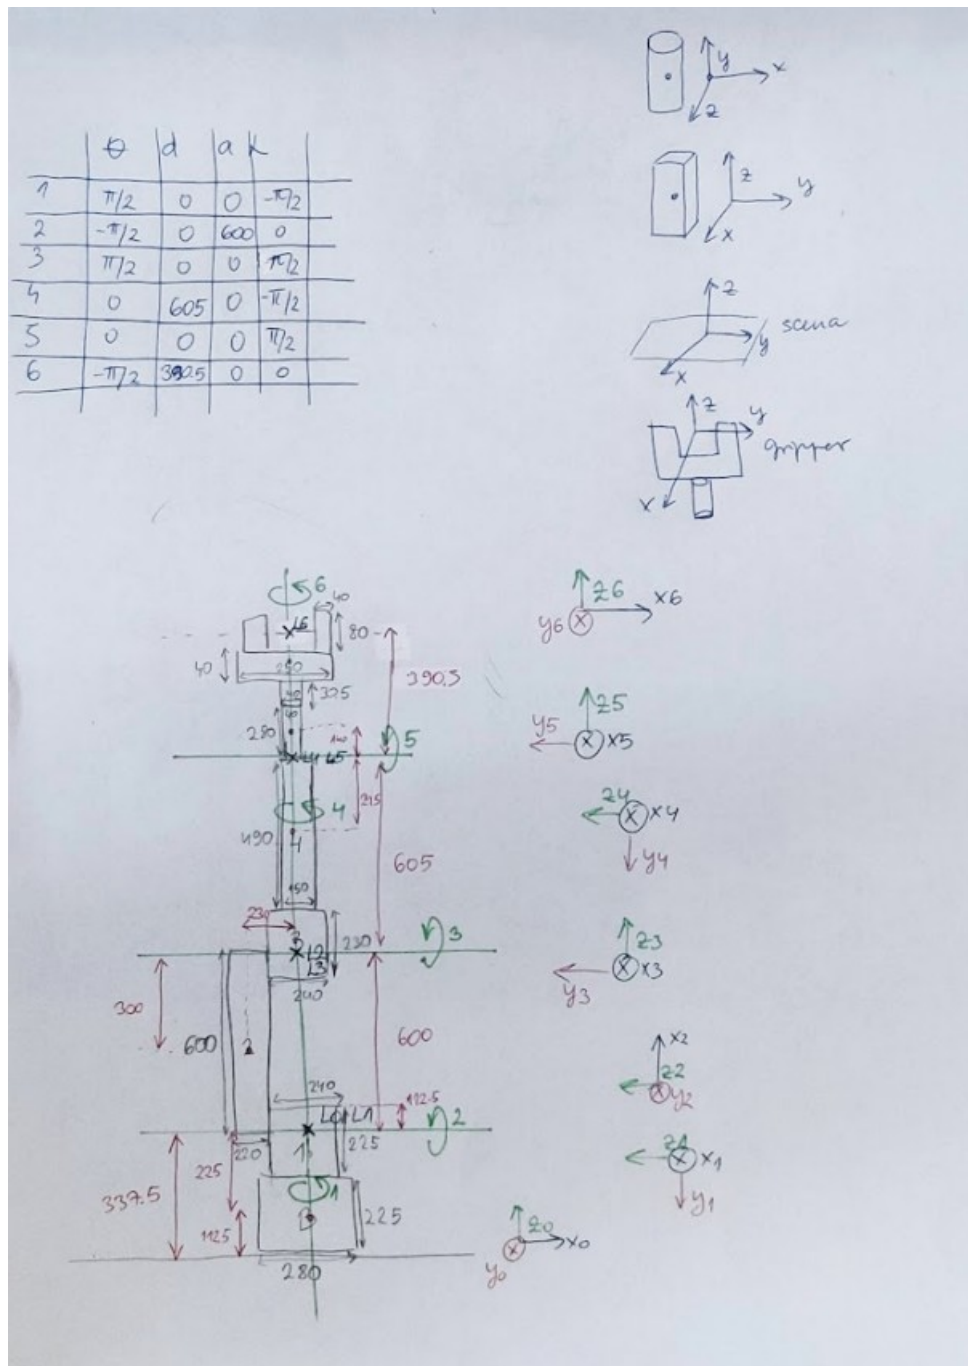 θ d a α
1 π/2 0 0 -π/2
2 -π/2 0 600 0
3 π/2 0 0 π/2
4 0 605 0 -π/2
5 0 0 0 π/2
6 -π/2 390.5 0 0
y
x
z
z
y
x
z
scena
y
x
z
y
gripper
x
6
40
L6
80
40
390.5
280
5
215
4
490
4
605
150
230
230
3
L2
L3
240
300
600
2
600
240
112.5
L1
2
220
1
225
225
337.5
1
225
112.5
280
z6
x6
y6
z5
y5
x5
z4
x4
y4
z3
x3
y3
x2
z2
y2
z1
x1
y1
z0
x0
y0